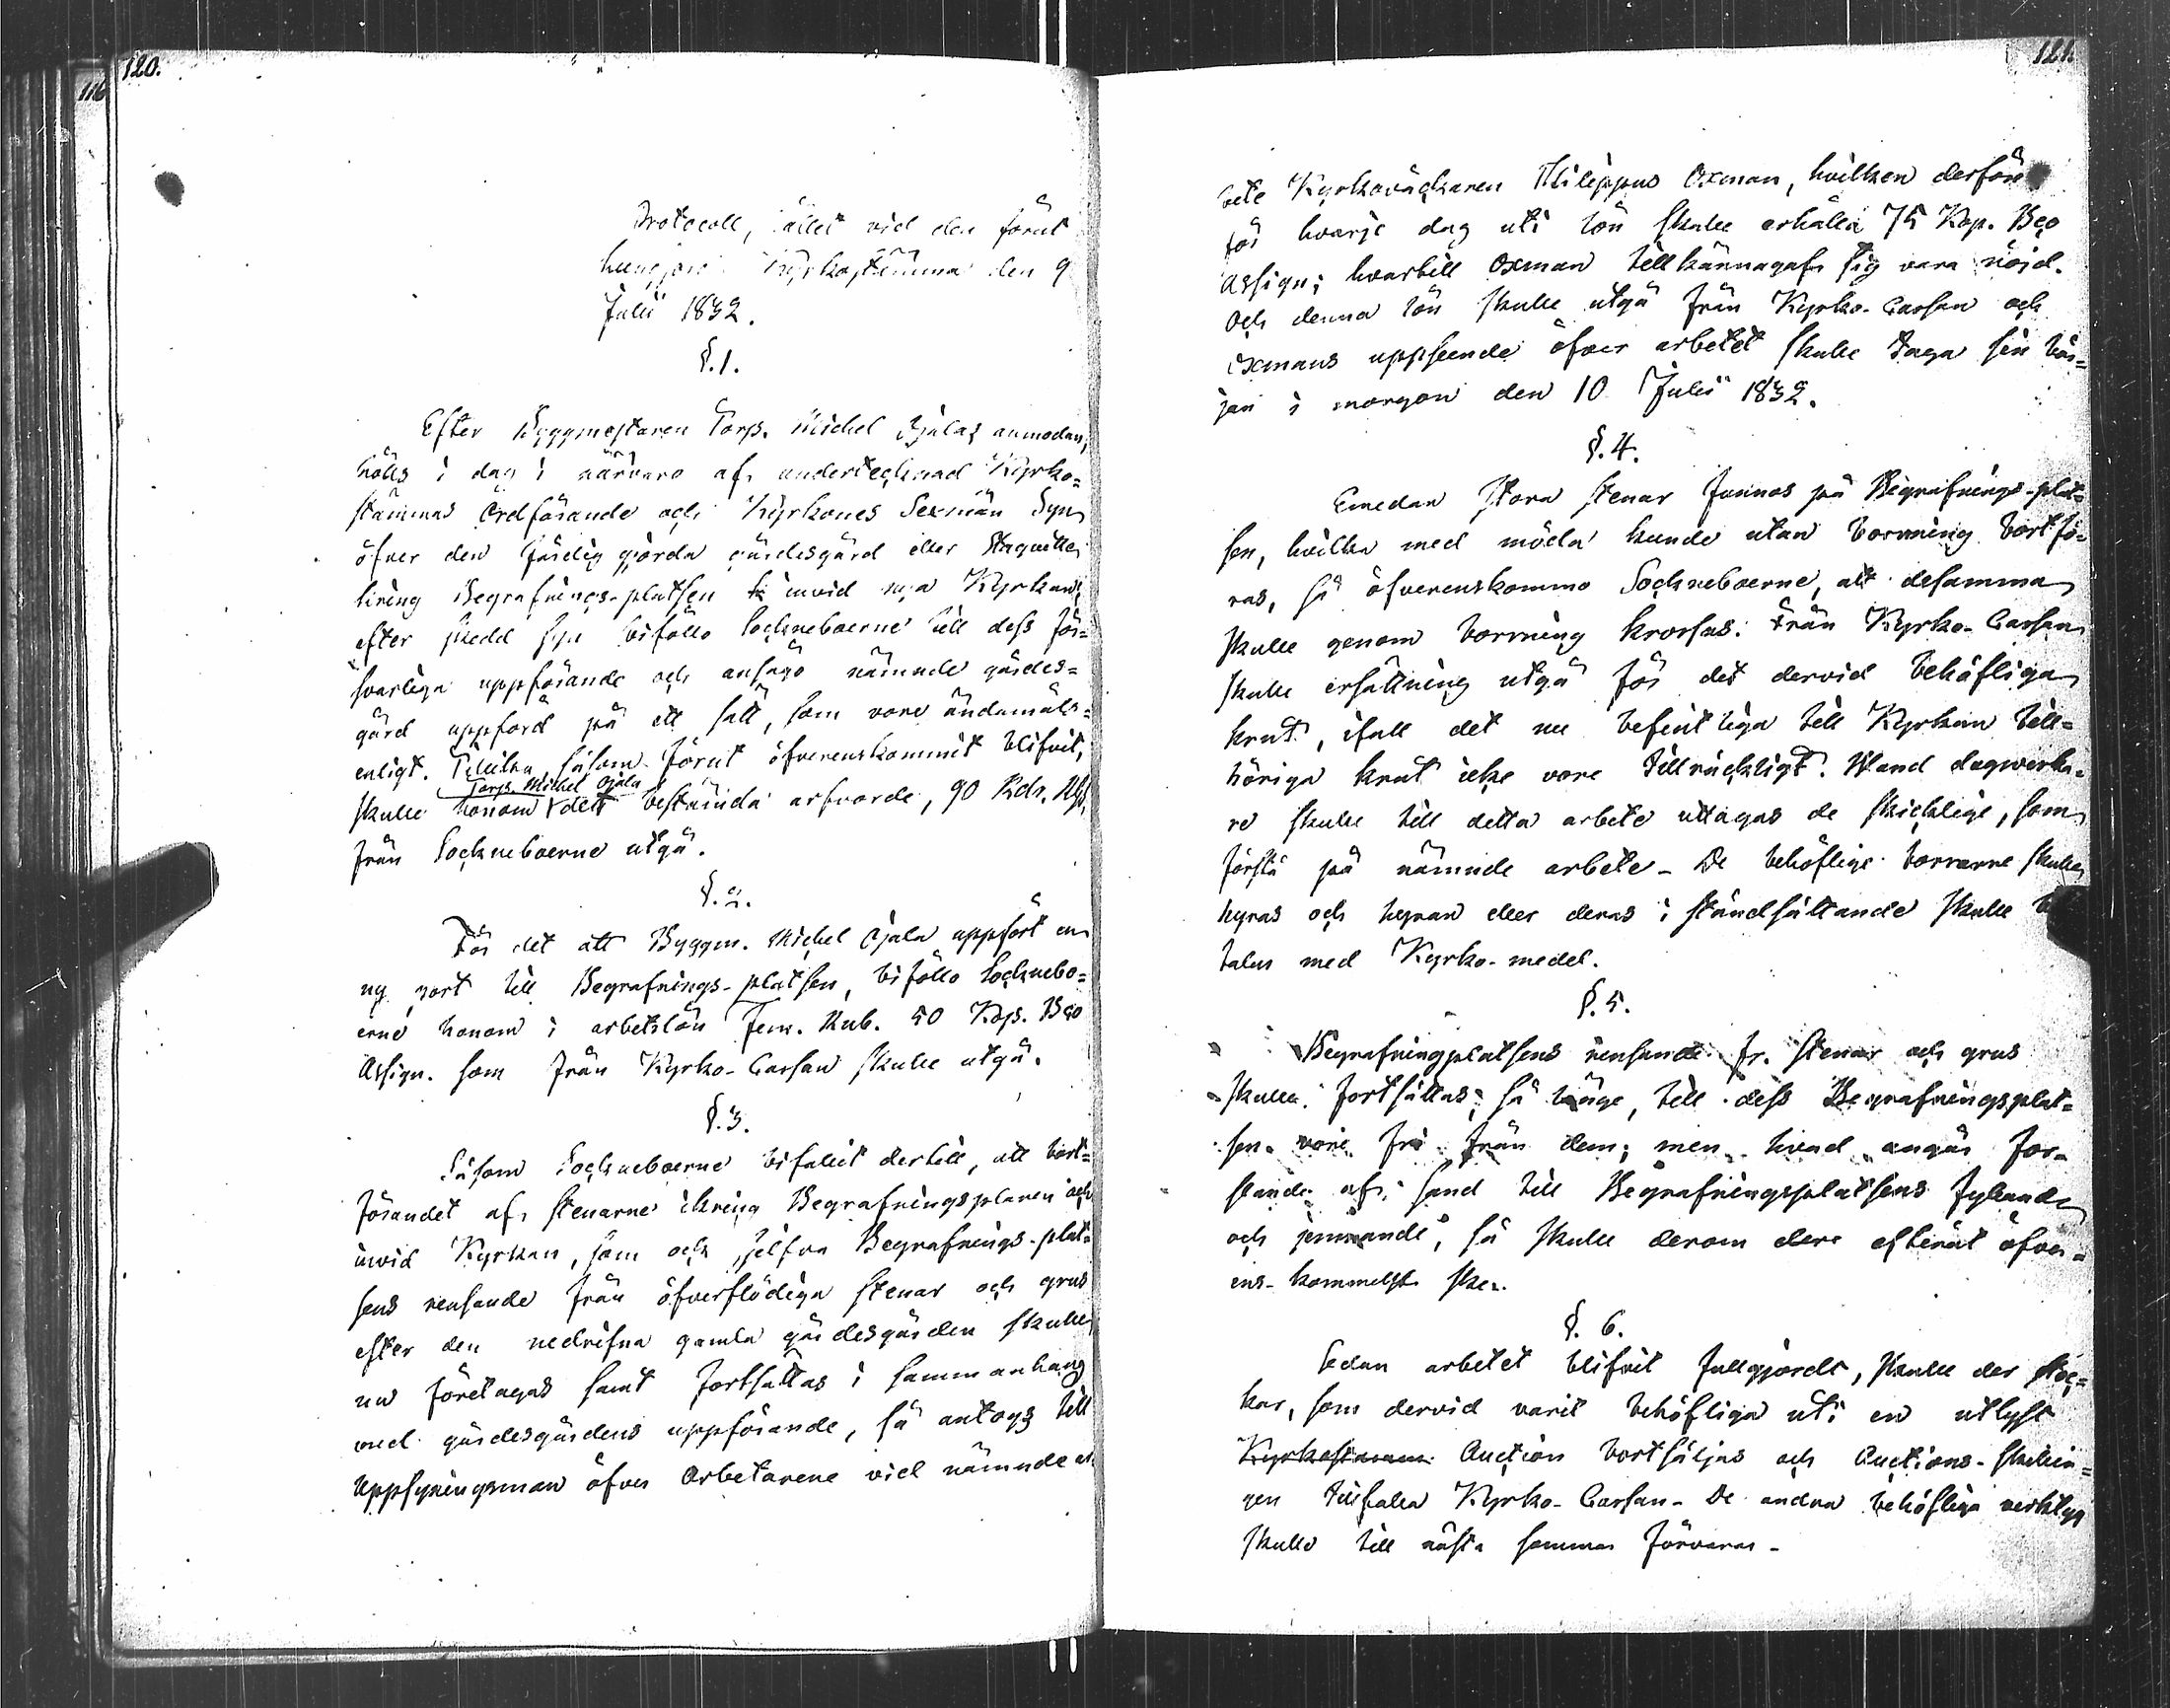 120.
116
Protocoll, hållet vid den förut
kungjorda Kyrkostämma den 9
Julii 1832.
§.1.
Efter Byggmestaren Torp. Michel Ojalas anmodan,
hölls i dag i närvaro af undertecknad Kyrko=
stämmas Ordförande och Kyrkones Sexmän Syn
öfver den färdig gjorda gärdesgård eller Staquitte
kring Begrafnings-platsen invid nya Kyrkan;
efter skedd syn biföllo Sockneboerne till dess för=
svarliga uppförande och ansågo nämnde gärdes=
gård uppförd på ett sätt, som vore ändamåls=
enligt. såsom förut öfverenskommit blifvit,
Torp. Michel Ojala
skulle honom det bestämda arfvorde, 90 Rdr. Rgs,
från Sockneboerne utgå.
§.2.
För det att Byggm. Michel Ojala uppfört en
ny port till Begrafnings-platsen, biföllo Socknebo=
erne honom i arbetslön Fem. Rub. 50 Kop. Bco
Assign. som från Kyrko-Cassan skulle utgå.
§.3.
Såsom Sockneboerne bifallit dertill, att bort=
förandet af stenarne ikring Begrafningsplanen och
invid Kyrkan, som ock sjelfva Begrafnings-plat=
sens rensande från öfverflödiga stenar och grus
efter den nedrifna gamla gärdesgården skulle
nu företagas samt fortsättas i sammanhang
med gärdesgårdens uppförande, så antogs till
Uppsyningsman öfver Arbetarene vid nämnde ar
121.
bete Kyrkoväckaren Philippus Oxman, hvilken derföre
för hvarje dag uti lön skulle erhålla 75 Kop. Bco
Assign; hvartill Oxman tillkännagaf sig vara nöjd.
Och denna lön skulle utgå från Kyrko-Cassan och
Oxmans uppseende öfver arbetet skulle taga sin bör=
jan i morgon den 10 Julii 1832.
§.4.
Emedan stora stenar funnos på Begrafnings-plat=
sen, hvilka med möda kunde utan borrning bortfö=
ras, så öfverenskommo Sockneboerne, att desamma
skulle genom borrning krossas. Från Kyrko-Cassan
skulle ersättning utgå för det dervid behöfliga
krut, ifall det nu befintliga till Kyrkan till=
höriga krut icke vore tillräckligt. Bland dagwerka=
re skulle till detta arbete uttagas de skicklige, som
förstå på nämnde arbete - De behöflige borrarne skulle
hyras och hyran eller deras i ståndsättande skulle be
talas med Kyrko-medel.
§.5.
Begrafningplatsens rensande fr. stenar och grus
skulle fortsättas, så länge, till dess Begrafningsplat=
sen vore fri från dem; men hvad angår for=
slande af sand till Begrafningsplatsens fyllande
och jemnande, så skulle derom dere efteråt öfver=
ens-kommelse ske.
§. 6.
Sedan arbetet blifvit fullgjordt, skulle der stoc=
kar, som dervid varit behöfliga uti en utlyst
Kyrkostämma Auction bortsäljas och Auctions-skillin=
gen tillfalla Kyrko-Cassan - De andra behöfliga verktyg
skulle till nästa sommar förvaras -